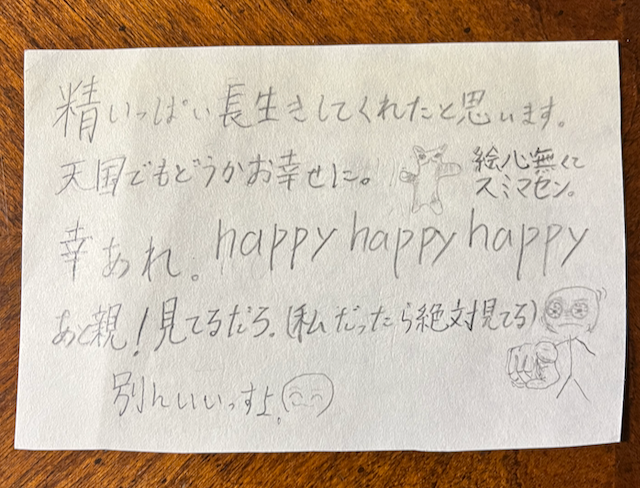 精いっぱい長生きしてくれたと思います。
天国でもどうかお幸せに。
絵心無くて
スミマセン。
幸あれ。happy happy happy
あと親!見てるだろ。(私だったら絶対見てる)
別んいいっすよ。